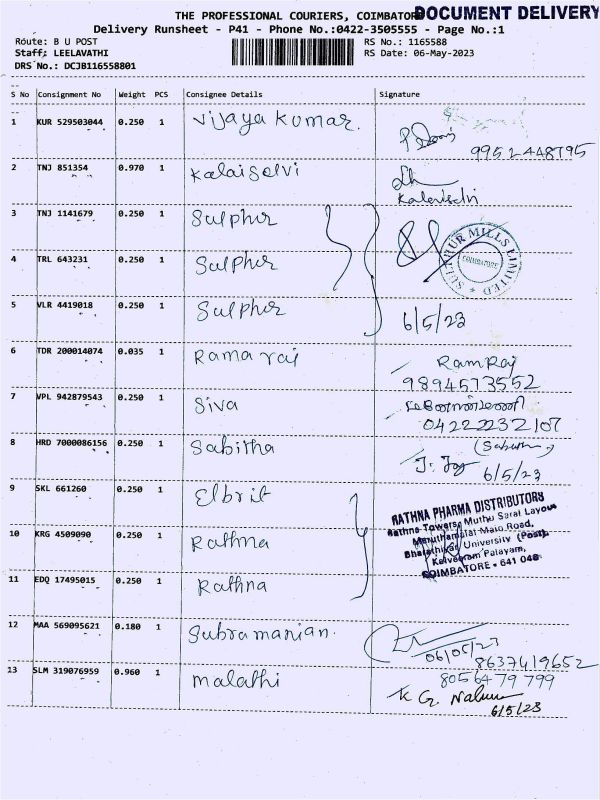 THE PROFESSIONAL COURIERS, COIMBATORE
DOCUMENT DELIVERY
Delivery Runsheet - P41 - Phone No.:0422-3505555 - Page No.:1
Route: B U POST
Staff: LEELAVATHI
DRS No.: DCJB116558801
RS No.: 1165588
RS Date: 06-May-2023
S No Consignment No Weight PCS Consignee Details Signature
1 KUR 529503044 0.250 1 Vijaya Kumar.
9952448795
2 TNJ 851354 0.970 1 Kalaiselvi
Kalaiselvi
3 TNJ 1141679 0.250 1 Sulphur
4 TRL 643231 0.250 1 Sulphur
SULPHUR MILLS LIMITED
COIMBATORE
5 VLR 4419018 0.250 1 Sulphur
6/5/23
6 TDR 200014074 0.035 1 Rama raj RamRaj
9894573552
7 VPL 942879543 0.250 1 Siva
04222232107
8 HRD 7000086156 0.250 1 Sabitha
6/5/23
9 SKL 661260 0.250 1 Elbrit
RATHNA PHARMA DISTRIBUTORS
Rathna Towers, Muthu Sarai Layout
Maruthamalai Main Road,
Bharathiyar University (Post),
Kalveeram Palayam,
COIMBATORE - 641 046.
10 KRG 4509090 0.250 1 Rathna
11 EDQ 17495015 0.250 1 Rathna
12 MAA 569095621 0.180 1 Subramanian.
06/05/23
8637419652
13 SLM 319076959 0.960 1 Malathi 8056479799
6/5/23